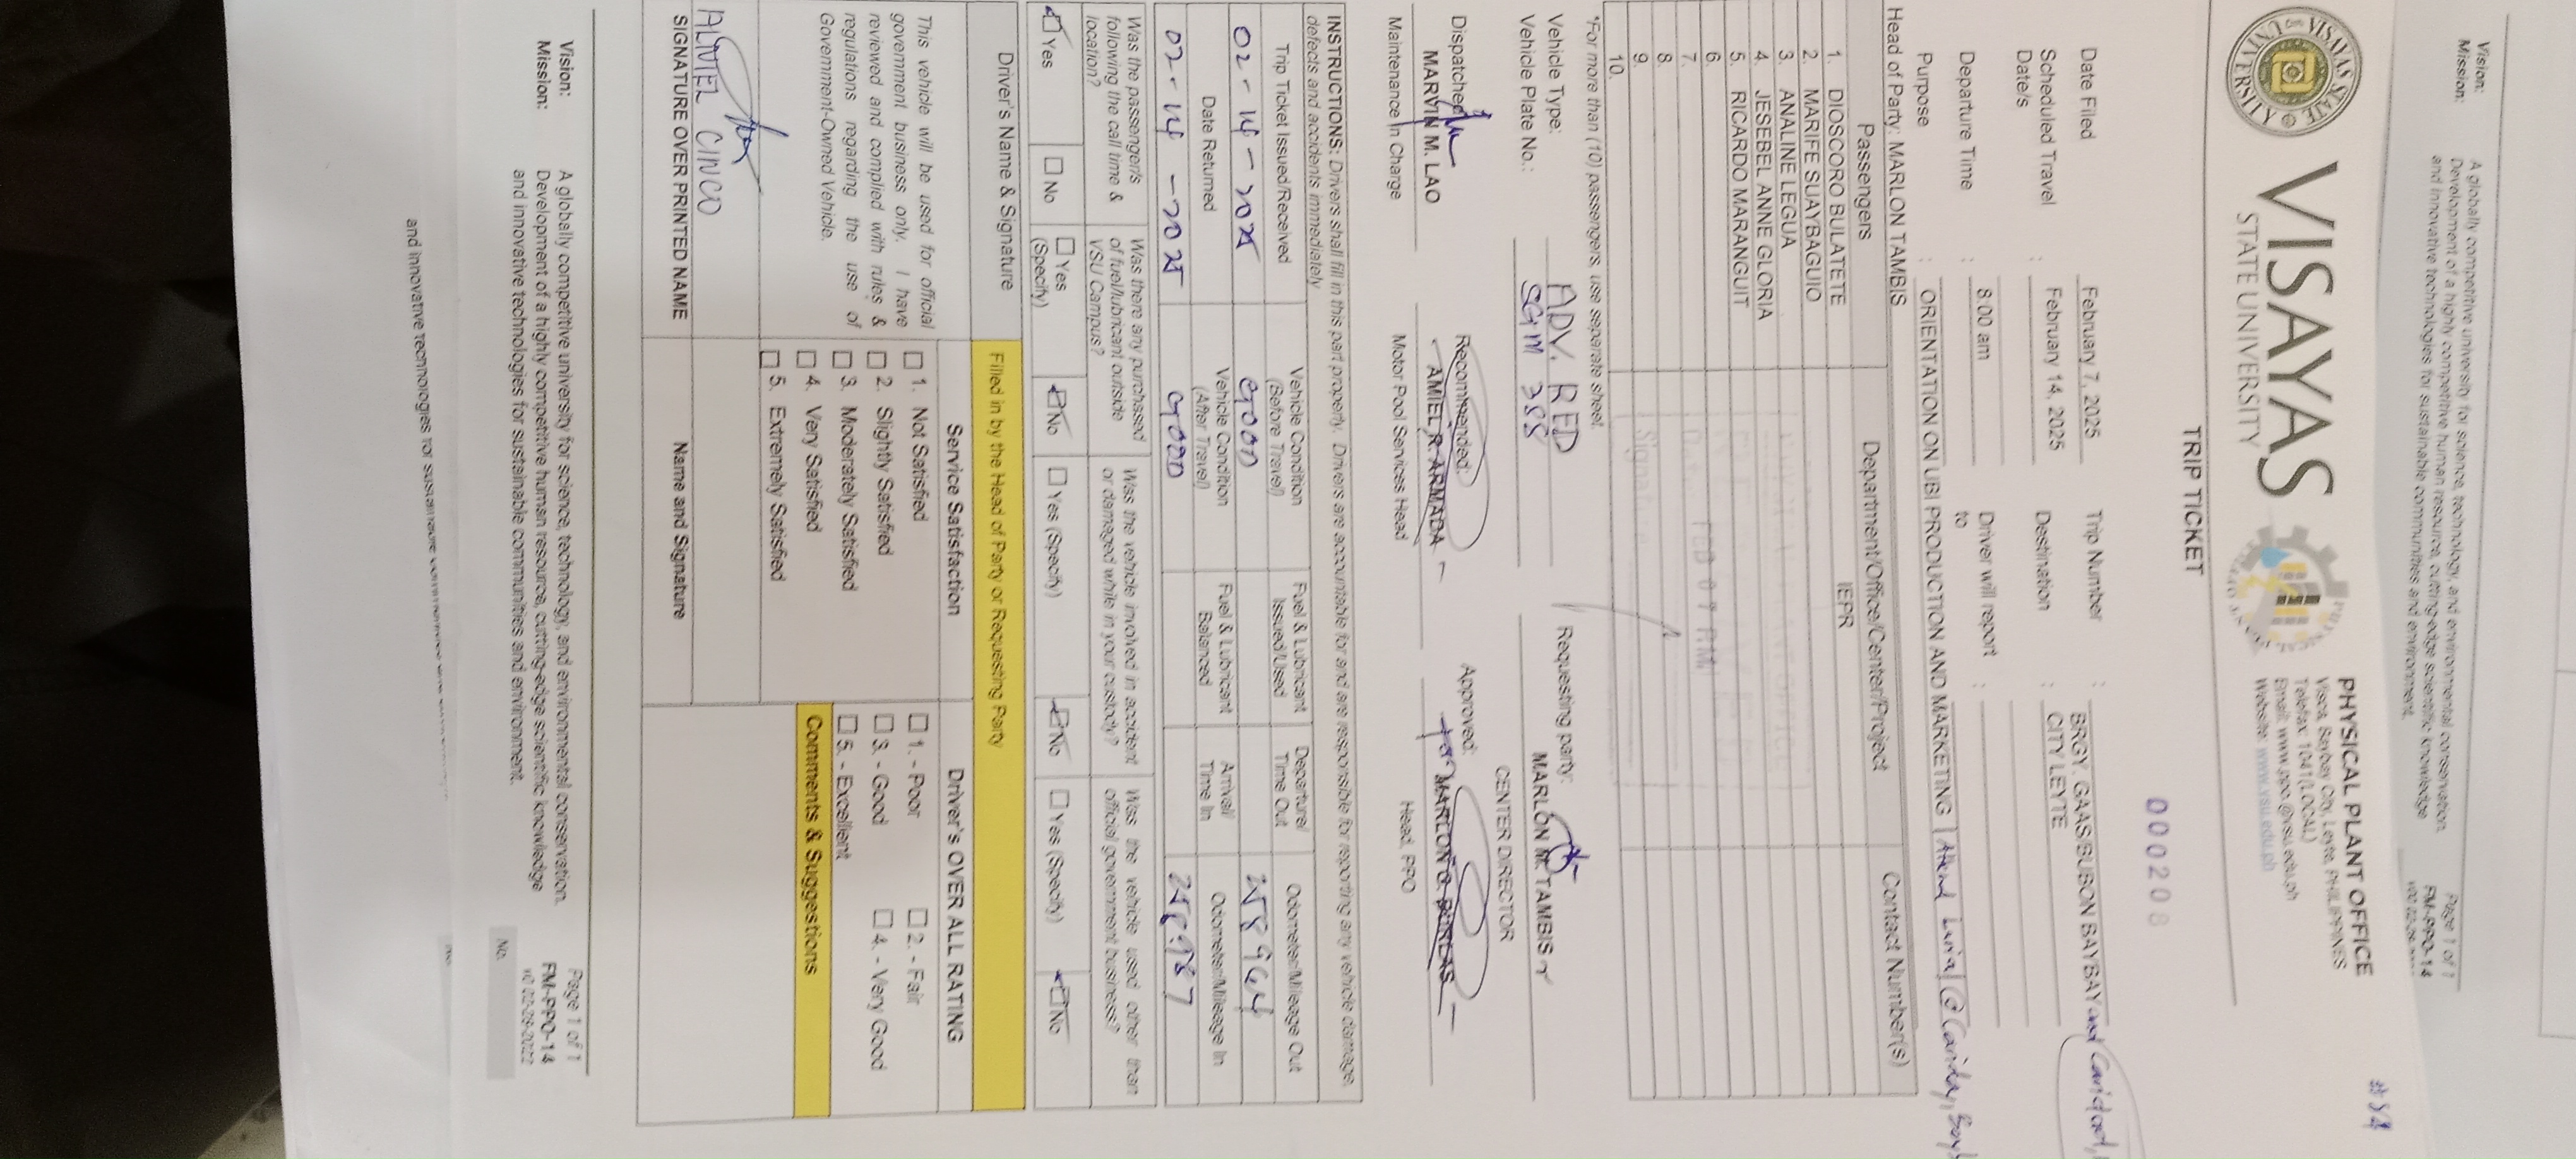 Vision:
A globally competitive university for science, technology, and environmental conservation.
Mission:
Development of a highly competitive human resource, cutting-edge scientific knowledge
and innovative technologies for sustainable communities and environment.
Page 1 of 1
FM-PPO-14
VISAYAS STATE UNIVERSITY
VISAYAS
STATE UNIVERSITY
PHYSICAL PLANT OFFICE
Visca, Baybay City, Leyte, PHILIPPINES
Telefax: 1041(LOCAL)
Email: www.ppo.@vsu.edu.ph
Website: www.vsu.edu.ph
TRIP TICKET
000208
Date Filed : February 7, 2025
Trip Number :
Scheduled Travel Date/s : February 14, 2025
Destination : BRGY. GAAS/BUBON BAYBAY and Caridad,
CITY LEYTE
Departure Time : 8:00 am
Driver will report to :
Purpose : ORIENTATION ON UBI PRODUCTION AND MARKETING / Attend burial @ Caridad,
Head of Party: MARLON TAMBIS
Passengers
Department/Office/Center/Project
Contact Number(s)
1. DIOSCORO BULATETE
IEPR
2. MARIFE SUAYBAGUIO
3. ANALINE LEGUA
4. JESEBEL ANNE GLORIA
5. RICARDO MARANGUIT
6.
7.
8.
9.
10.
*For more than (10) passengers, use separate sheet.
Vehicle Type: ADV. RED
Vehicle Plate No.: SGM 388
Requesting party:
MARLON M. TAMBIS
CENTER DIRECTOR
Dispatched:
MARVIN M. LAO
Maintenance In Charge
Recommended:
AMIEL R. ARMADA
Motor Pool Services Head
Approved:
MARLON G. BURLAS
Head, PPO
INSTRUCTIONS: Drivers shall fill in this part properly. Drivers are accountable for and are responsible for reporting any vehicle damage,
defects and accidents immediately
Trip Ticket Issued/Received
Vehicle Condition (Before Travel)
Fuel & Lubricant Issued/Used
Departure/ Time Out
Odometer/Mileage Out
02-14-2025
GOOD
258964
Date Returned
Vehicle Condition (After Travel)
Fuel & Lubricant Balanced
Arrival/ Time In
Odometer/Mileage In
02-14-2025
GOOD
Was the passenger/s following the call time & location?
Was there any purchased of fuel/lubricant outside VSU Campus?
Was the vehicle involved in accident or damaged while in your custody?
Was the vehicle used other than official government business?
☑ Yes ☐ No
☐ Yes (Specify) ☑ No
☐ Yes (Specify) ☑ No
☐ Yes (Specify) ☑ No
Driver's Name & Signature
Filled in by the Head of Party or Requesting Party
Service Satisfaction
Driver's OVER ALL RATING
This vehicle will be used for official
government business only. I have
reviewed and complied with rules &
regulations regarding the use of
Government-Owned Vehicle.
☐ 1. Not Satisfied
☐ 2. Slightly Satisfied
☐ 3. Moderately Satisfied
☐ 4. Very Satisfied
☐ 5. Extremely Satisfied
☐ 1. - Poor ☐ 2. - Fair
☐ 3. - Good ☐ 4. - Very Good
☐ 5. - Excellent
Comments & Suggestions
ALNTER CINCO
SIGNATURE OVER PRINTED NAME
Name and Signature
Vision:
A globally competitive university for science, technology, and environmental conservation.
Mission:
Development of a highly competitive human resource, cutting-edge scientific knowledge
and innovative technologies for sustainable communities and environment.
Page 1 of 1
FM-PPO-14
v0 02-28-2022
No.
and innovative technologies for sustainable communities and environment.